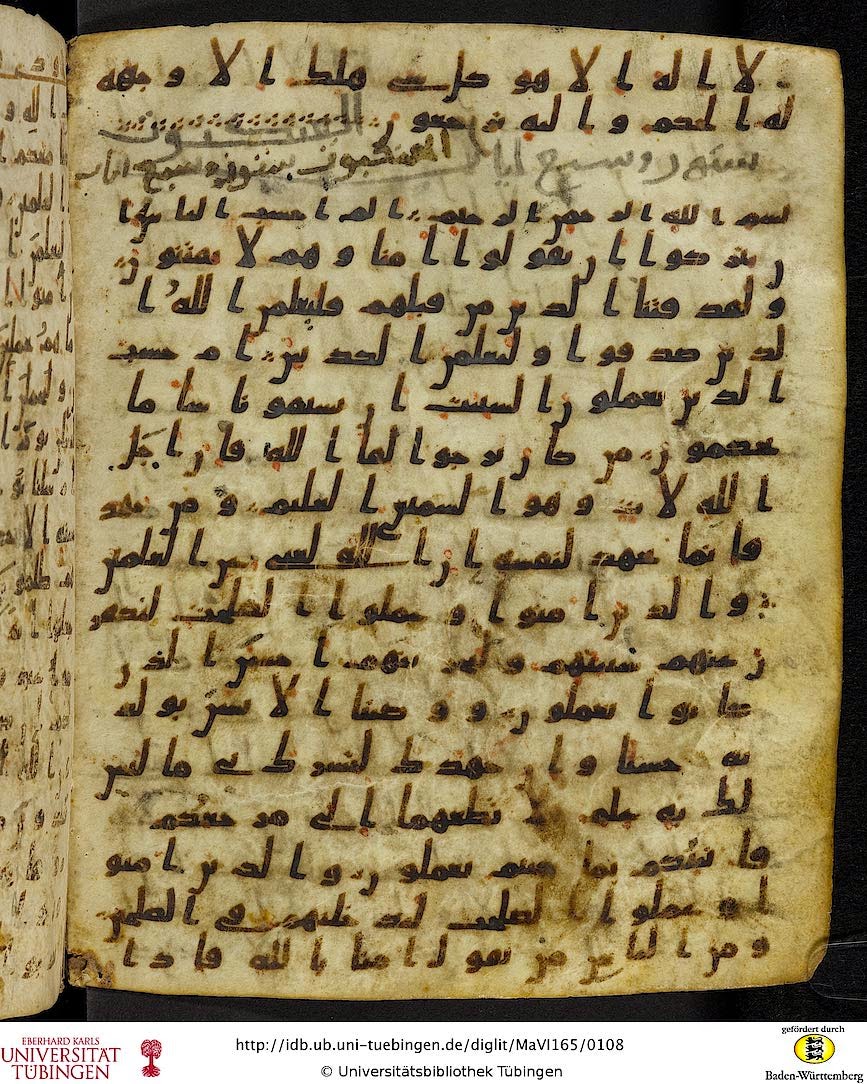 لا اله الا هو كل شى هلك الا وجهه
له الحكم و اليه ترجعون
العنكبوت
ستون وسبع ايا
العنكبوت ستون وسبع ايات
بسم الله الرحمن الرحيم الم احسب الناس ا
ن يتركوا ان يقولوا امنا و هم لا يفتنون
و لقد فتنا الذين من قبلهم فليعلمن الله ا
لذين صدقوا و ليعلمن الكذبين ام حسب
الذين يعملون السيت ان يسبقونا سا ما
يحكمون من كان يرجوا لقا الله فان اجل
الله لات و هو السميع العليم و من جهد
فانما يجهد لنفسه ان الله لغنى عن العلمين
و الذين امنوا و عملوا الصلحت لنكفر
ن عنهم سيتهم و لنجزينهم احسن الذى
كانوا يعملون و وصينا الانسن بولد
يه حسنا و ان جهدك لتشرك بى ما ليس
لك به علم فلا تطعهما الى مرجعكم
فانبئكم بما كنتم تعملون و الذين امنو
ا و عملوا الصلحت لندخلنهم فى الصلحين
و من الناس من يقول امنا بالله فاذا
EBERHARD KARLS
UNIVERSITÄT
TÜBINGEN
http://idb.ub.uni-tuebingen.de/diglit/MaVI165/0108
© Universitätsbibliothek Tübingen
gefördert durch
Baden-Württemberg